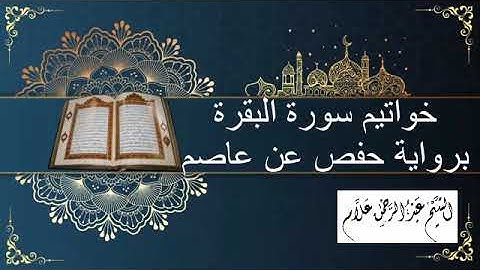 خواتيم سورة البقرة
برواية حفص عن عاصم
الشيخ عبد الرحمن علام